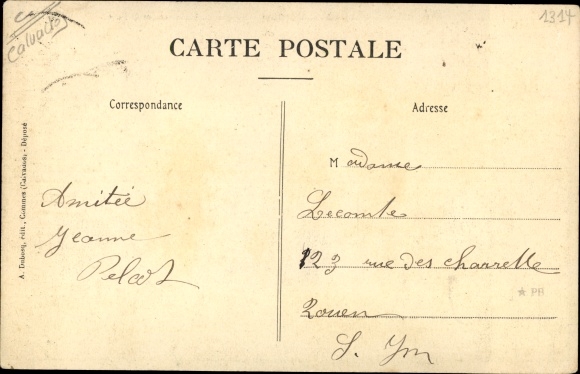 Calvados
1314
CARTE POSTALE
Correspondance
Adresse
A. Dubosq, édit., Commes (Calvados). - Déposé
Amitiée
Jeanne
Madame
Lecomte
123 rue des charrette
Rouen
S. Inf
★ PR